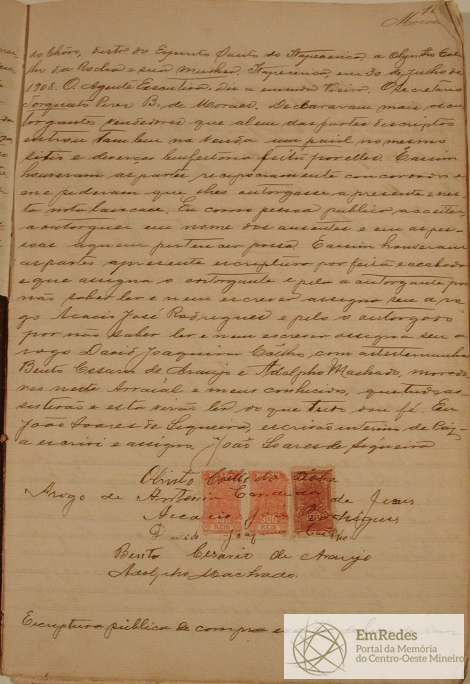 Moraes
do Chôro, districto do Espirito Santo de Itapecerica, a Olyntho Coe-
lho da Rocha e sua mulher. Itapecerica, em 30 de Junho de
1908. O Agente Executivo. O Secretario
Torquato Perez B. de Moraes. Declararam mais os ou-
torgantes vendedores que alem das partes descriptas
entrou tambem na venda um paiol no mesmo
sitio e diversas bemfeitorias feitas por elles. E assim
houveram as partes reciprocamente concordado e
me pediram que lhes outorgasse a presente e nes-
ta nota lancasse. Eu como pessoa publica acceitei
e outorguei em nome dos ausentes e em as pes-
soas a quem pertencer possa. E assim houveram
as partes a presente escriptura por feita e acabada
e que assigna o outorgante e pela a outorgante por
não saber ler e nem escrever assigna seu a ro-
go Acacio José Rodrigues e pelo o outorgado
por não saber ler e nem escrever assigna seu a
rogo David Joaquim Coelho com as testemunhas
Bento Cesario de Araujo e Adolpho Machado, morado-
res neste Arraial e meus conhecidos, que tudo as-
sistirão e esta virão ler do que tudo dou fé. Eu
João Soares de Siqueira, escrivão interino de Paz,
a escrivi e assigno, João Soares de Siqueira
Olinto Coelho da Rocha
Arogo de Antonia Candida de Jesus
Acacio José Rodrigues
David Joaquim Coelho
300 REIS
300 REIS
Bento Cesario de Araujo
Adolpho Machado.
Escriptura publica de compra e
EmRedes
Portal da Memória
do Centro-Oeste Mineiro